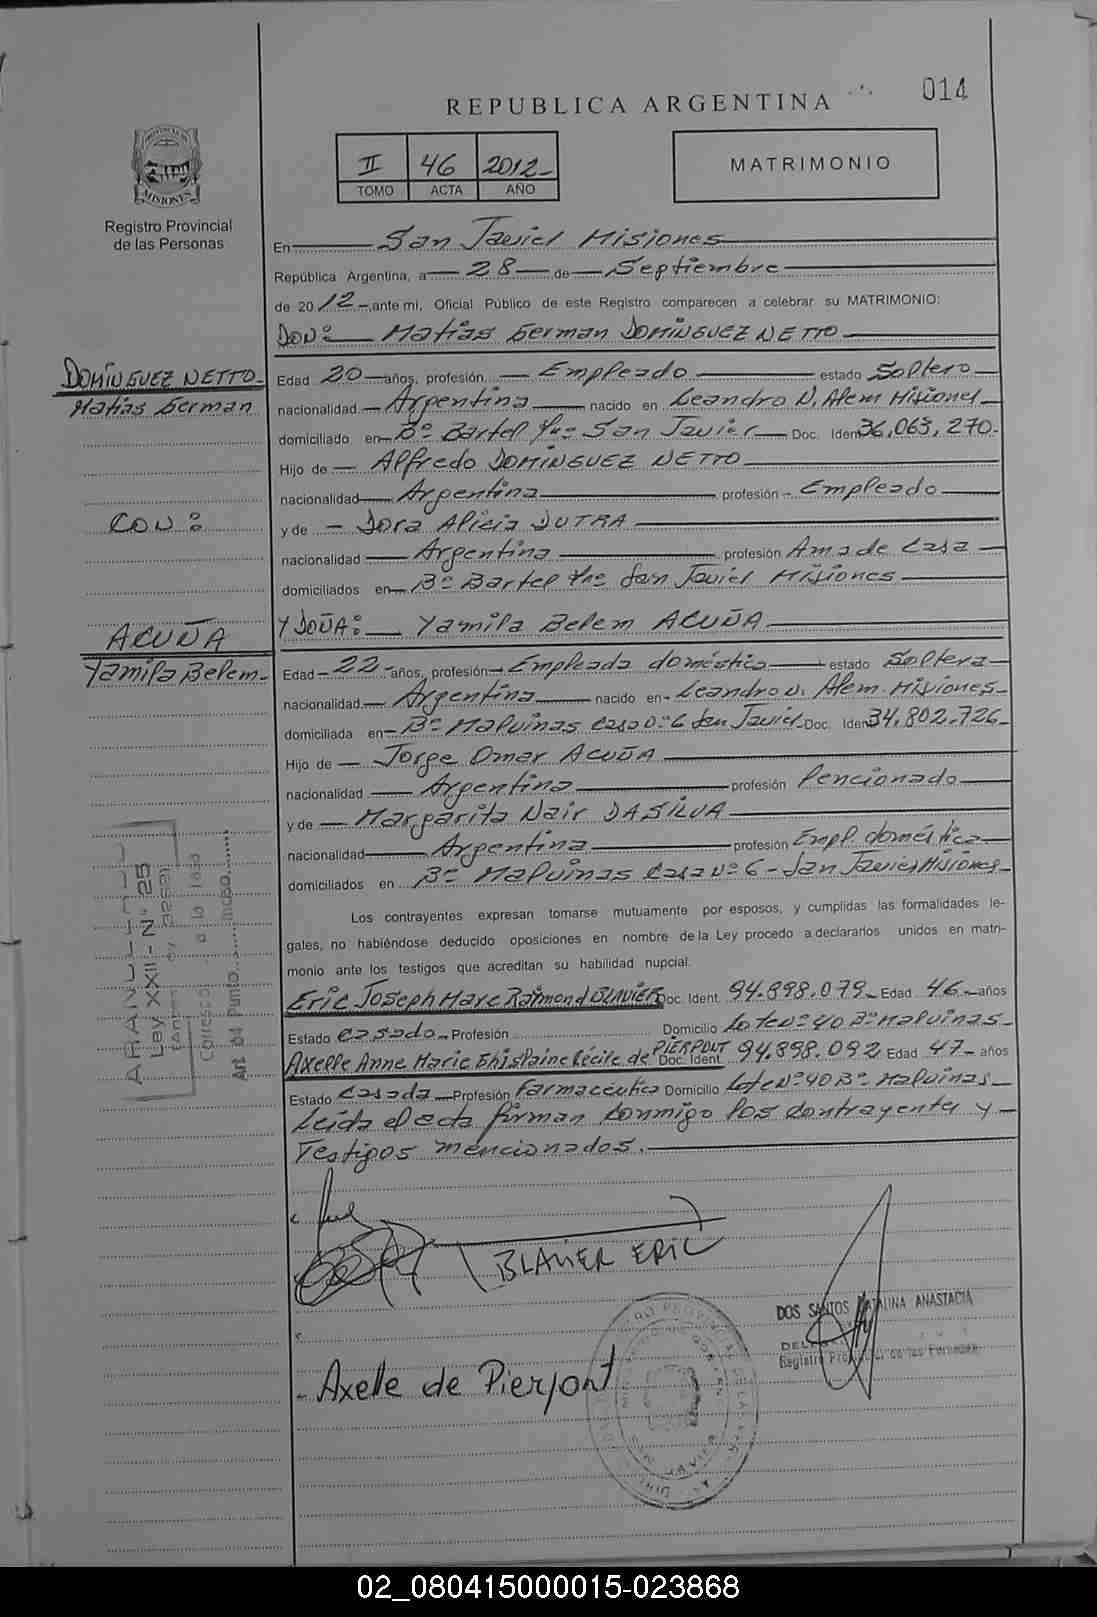 014
REPUBLICA ARGENTINA
II 46 2012-
TOMO ACTA AÑO
MATRIMONIO
PROVINCIA DE
MISIONES
Registro Provincial
de las Personas
En San Javier Misiones
República Argentina, a 28 de Septiembre
de 2012 ante mi, Oficial Público de este Registro comparecen a celebrar su MATRIMONIO:
DON: Matías German DOMINGUEZ NETTO
DOMINGUEZ NETTO
Matías German
CON:
ACUÑA
Yamila Belem
Edad 20 años, profesión Empleado estado Soltero
nacionalidad Argentina nacido en Leandro N. Alem Misiones
domiciliado en Bº Bartel San Javier Doc. Iden 36.063.270
Hijo de Alfredo DOMINGUEZ NETTO
nacionalidad Argentina profesión Empleado
y de Dora Alicia DUTRA
nacionalidad Argentina profesión Ama de Casa
domiciliados en Bº Bartel San Javier Misiones
Y DOÑA: Yamila Belem ACUÑA
Edad 22 años, profesión Empleada doméstica estado Soltera
nacionalidad Argentina nacido en Leandro N. Alem Misiones
domiciliada en Bº Malvinas Casa Nº 6 San Javier Doc. Iden 34.802.726
Hijo de Jorge Omar ACUÑA
nacionalidad Argentina profesión Pencionado
y de Margarita Nair DA SILVA
nacionalidad Argentina profesión Empl. doméstica
domiciliados en Bº Malvinas Casa Nº 6 - San Javier Misiones
Los contrayentes expresan tomarse mutuamente por esposos, y cumplidas las formalidades le-
gales, no habiéndose deducido oposiciones en nombre de la Ley procedo a declararlos unidos en matri-
monio ante los testigos que acreditan su habilidad nupcial.
Eric Joseph Marc Raimond BLAVIER Doc. Ident. 94.898.079 Edad 46 años
Estado Casado Profesión Domicilio Lote Nº 40 Bº Malvinas
Axelle Anne Marie Ghislaine Cécile de PIERPONT Doc. Ident. 94.898.092 Edad 47 años
Estado Casada Profesión Farmacéutica Domicilio Lote Nº 40 Bº Malvinas
Leída el acta firman conmigo los contrayentes y
Testigos mencionados.
Ley XXII - Nº 25
BLAVIER ERIC
DOS SANTOS CATALINA ANASTACIA
Axelle de Pierpont
02_080415000015-023868